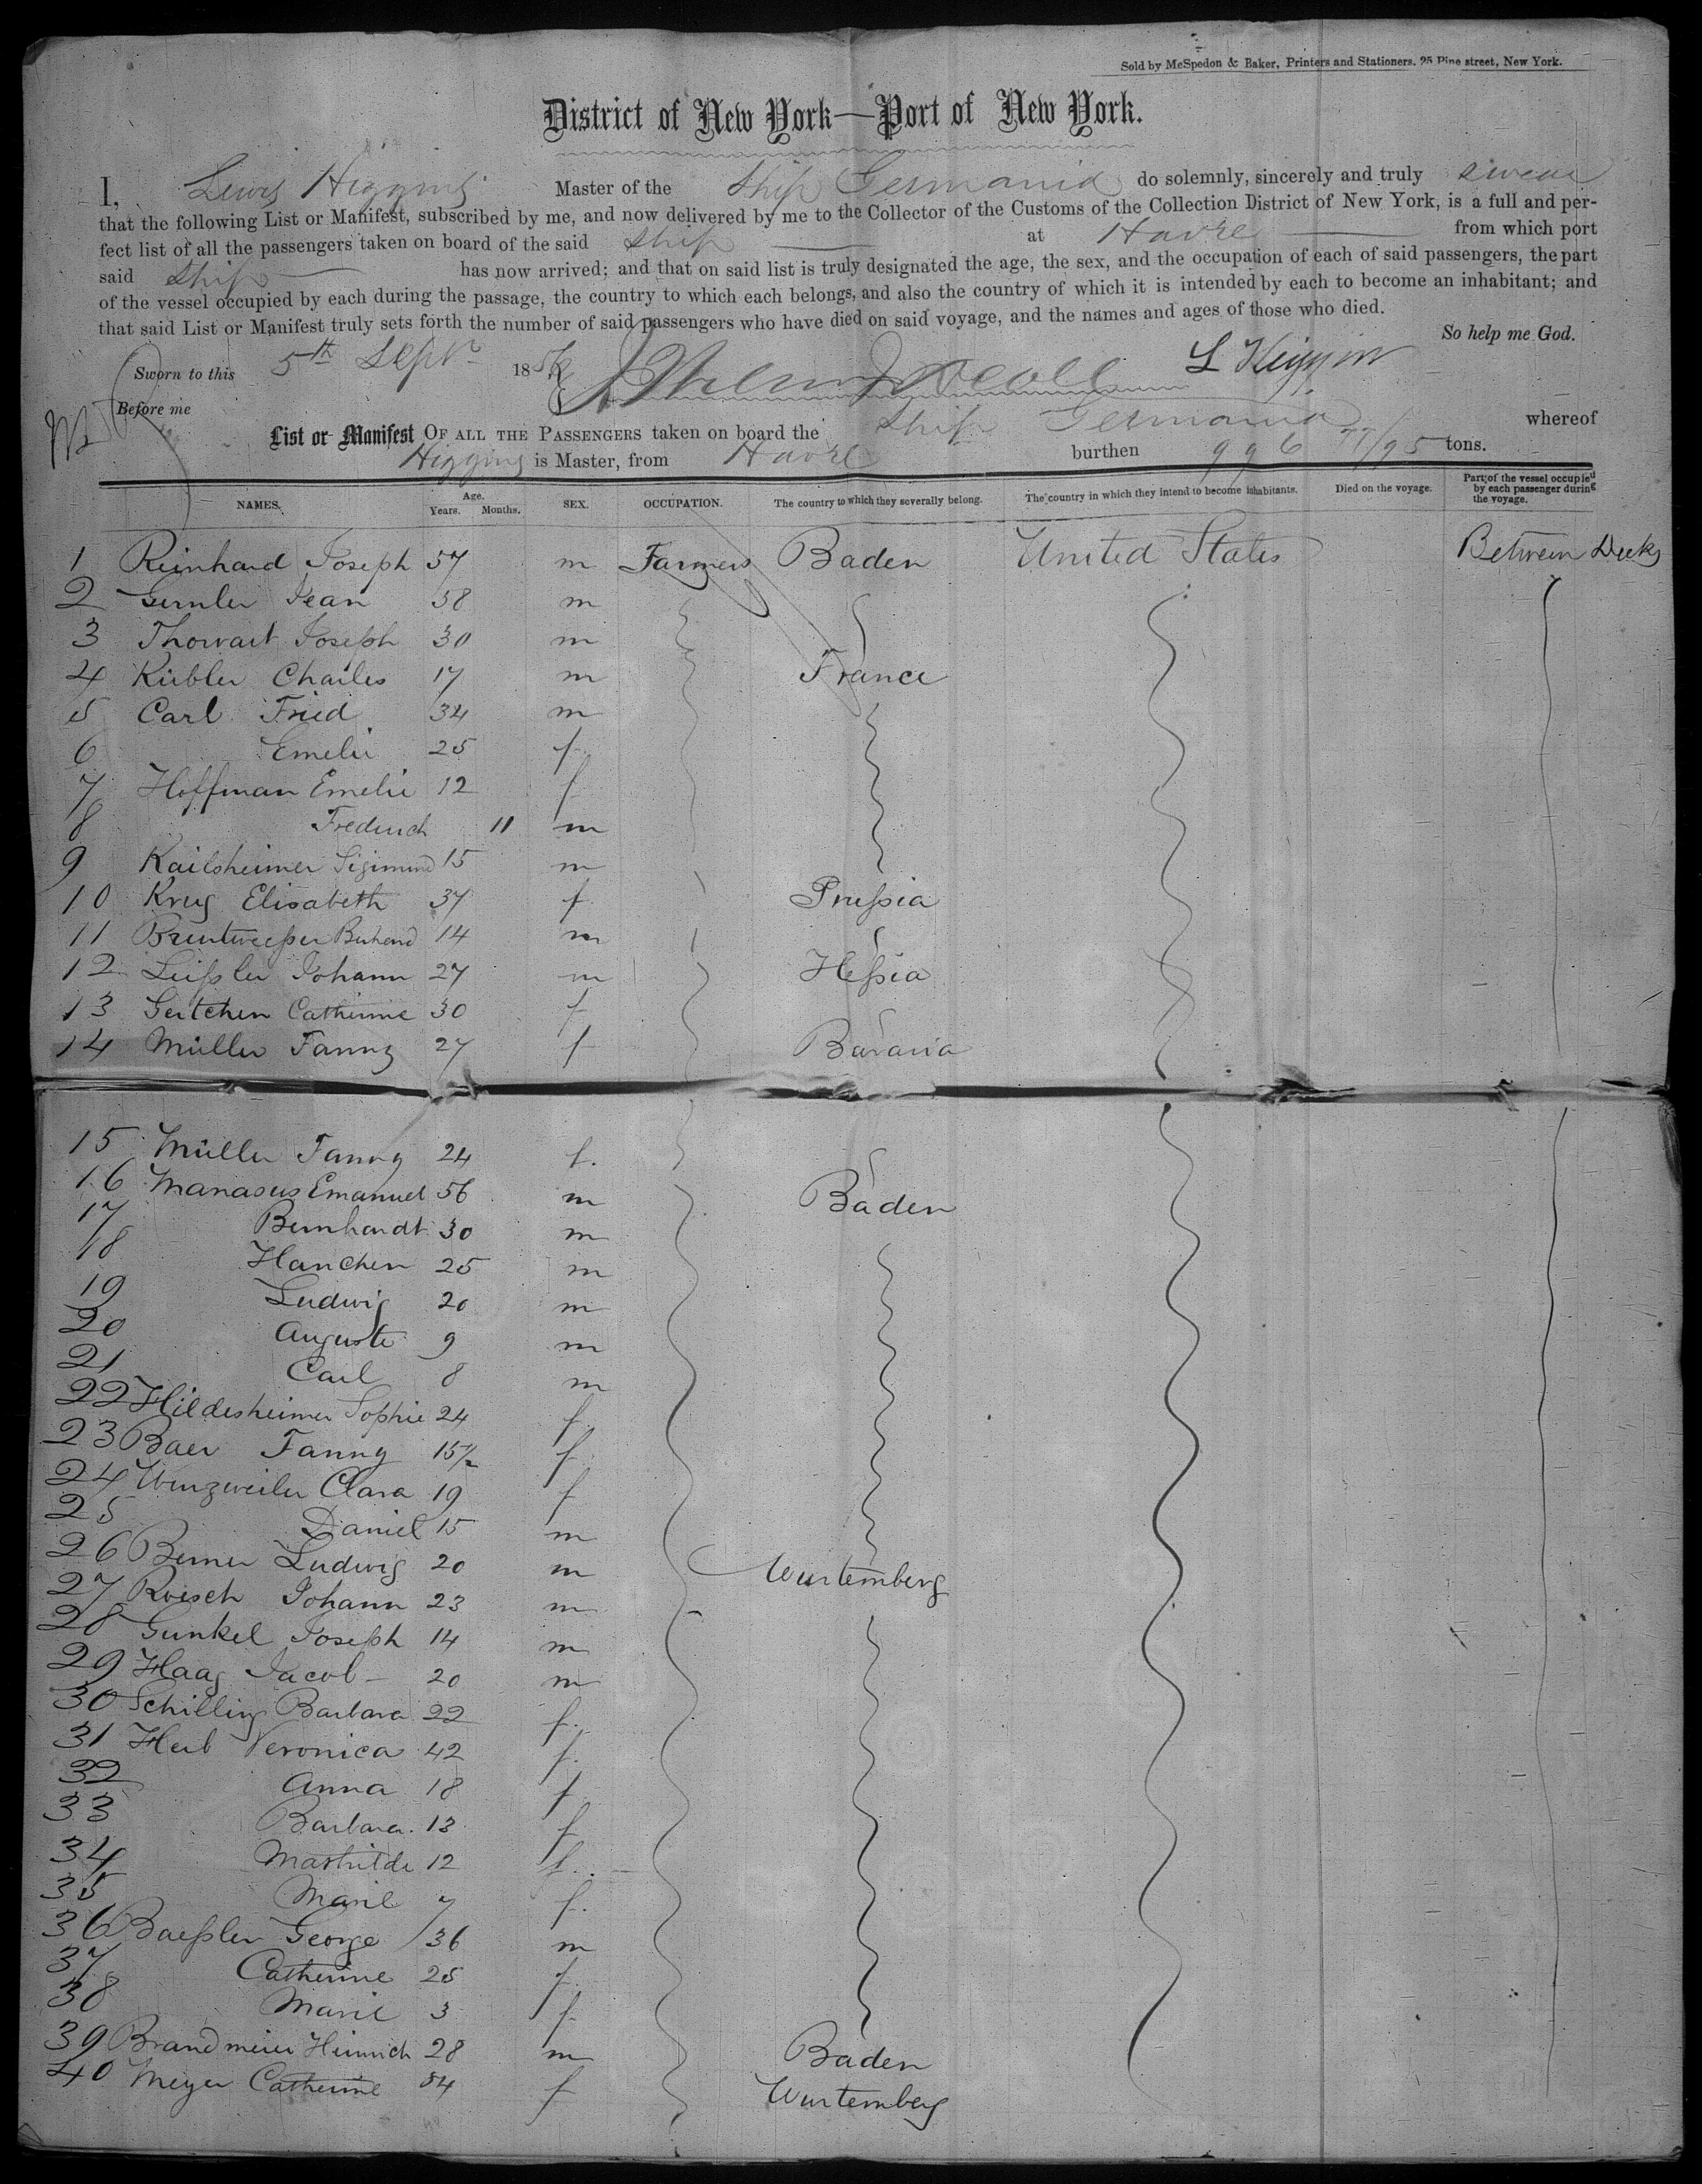 Sold by McSpedon & Baker, Printers and Stationers, 25 Pine street, New York.
District of New York—Port of New York.
I, Lewis Higgins Master of the Ship Germania do solemnly, sincerely and truly swear
that the following List or Manifest, subscribed by me, and now delivered by me to the Collector of the Customs of the Collection District of New York, is a full and per-
fect list of all the passengers taken on board of the said Ship at Havre from which port
said Ship has now arrived; and that on said list is truly designated the age, the sex, and the occupation of each of said passengers, the part
of the vessel occupied by each during the passage, the country to which each belongs, and also the country of which it is intended by each to become an inhabitant; and
that said List or Manifest truly sets forth the number of said passengers who have died on said voyage, and the names and ages of those who died.
So help me God.
Sworn to this 5th Sept 18 L Higgins
Before me
List or Manifest OF ALL THE PASSENGERS taken on board the Ship Germania whereof
Higgins is Master, from Havre burthen 996 77/95 tons.
NAMES. Age. Years. Months. SEX. OCCUPATION. The country to which they severally belong. The country in which they intend to become inhabitants. Died on the voyage. Part of the vessel occupied by each passenger during the voyage.
1 Reinhard Joseph 57 m Farmers Baden United States Between Decks
2 Gernler Jean 38 m
3 Thowart Joseph 30 m
4 Kübler Charles 17 m France
5 Carl Fried 34 m
6 Emelie 25 f
7 Hoffman Emelie 12 f
8 Frederich 11 m
9 Kailsheimer Sigimund 15 m
10 Krug Elisabeth 37 f Prussia
11 14 m
12 Leissler Johann 27 m Hessia
13 Geitchen Catherine 30 f
14 Müller Fanny 27 f Bavaria
15 Müller Fanny 24 f.
16 Manasus Emanuel 56 m Baden
17 Bernhardt 30 m
18 Hanchen 25 m
19 Ludwig 20 m
20 Auguste 9 m
21 Carl 8 m
22 Hildesheimer Sophie 24 f.
23 Baer Fanny 15½ f.
24 Winzweiler Clara 19 f
25 Daniel 15 m
26 Berner Ludwig 20 m Wurtemberg
27 Roesch Johann 23 m
28 Gunkel Joseph 14 m
29 Haag Jacob 20 m
30 Schilling Barbara 22 f.
31 Herb Veronica 42 f.
32 Anna 18 f
33 Barbara 13 f
34 Mathilde 12 f.
35 Marie 7 f.
36 Baessler George 36 m
37 Catherine 25 f.
38 Marie 3 f.
39 Brandmeier Heinrich 28 m Baden
40 Meyer Catherine 54 f Wurtemberg